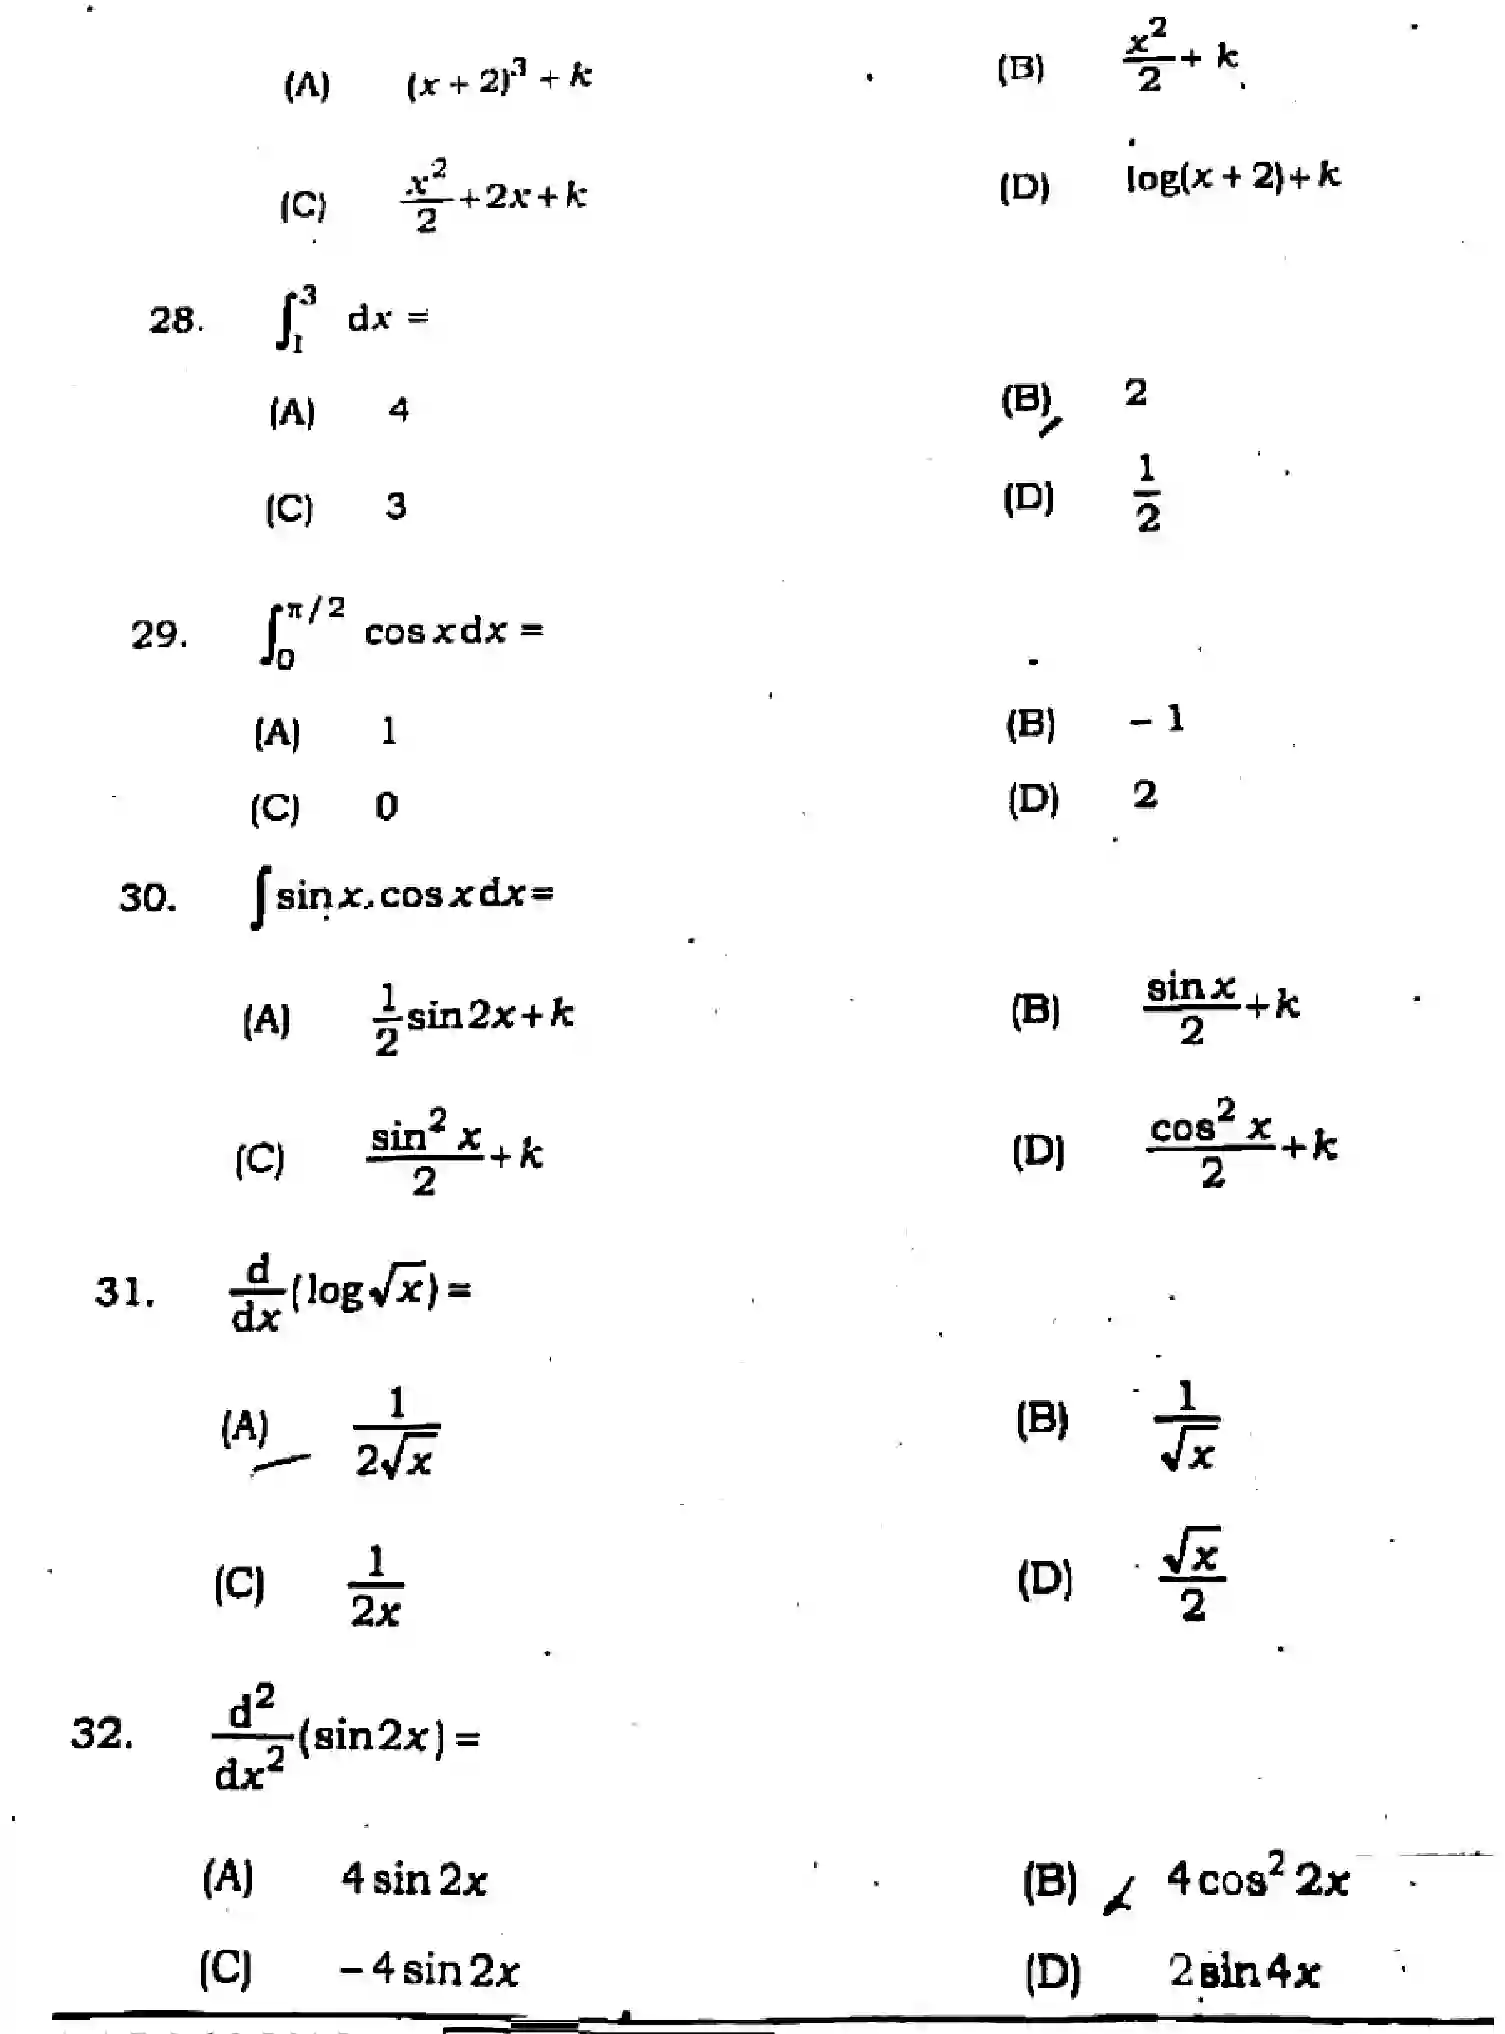 (A) (x + 2)³ + k (B) x²/2 + k
(C) x²/2 + 2x + k (D) log(x + 2) + k
28. ∫₁³ dx =
(A) 4 (B) 2
(C) 3 (D) 1/2
29. ∫₀^π/2 cos x dx =
(A) 1 (B) – 1
(C) 0 (D) 2
30. ∫ sin x . cos x dx =
(A) 1/2 sin 2x + k (B) sin x/2 + k
(C) sin² x/2 + k (D) cos² x/2 + k
31. d/dx (log √x) =
(A) 1/2√x (B) 1/√x
(C) 1/2x (D) √x/2
32. d²/dx² (sin 2x) =
(A) 4 sin 2x (B) 4 cos² 2x
(C) – 4 sin 2x (D) 2 sin 4x